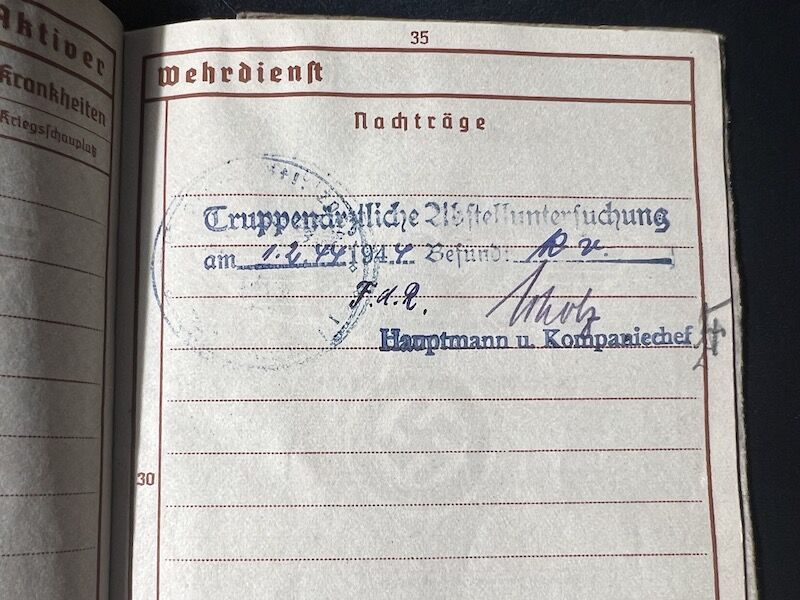 Aktiver
Krankheiten
Kriegsschauplatz
35
Wehrdienst
Nachträge
Truppenärztliche Abstelluntersuchung
am 1.2.44 1944 Befund: k v.
F.d.R. Scholz
Hauptmann u. Kompaniechef
30